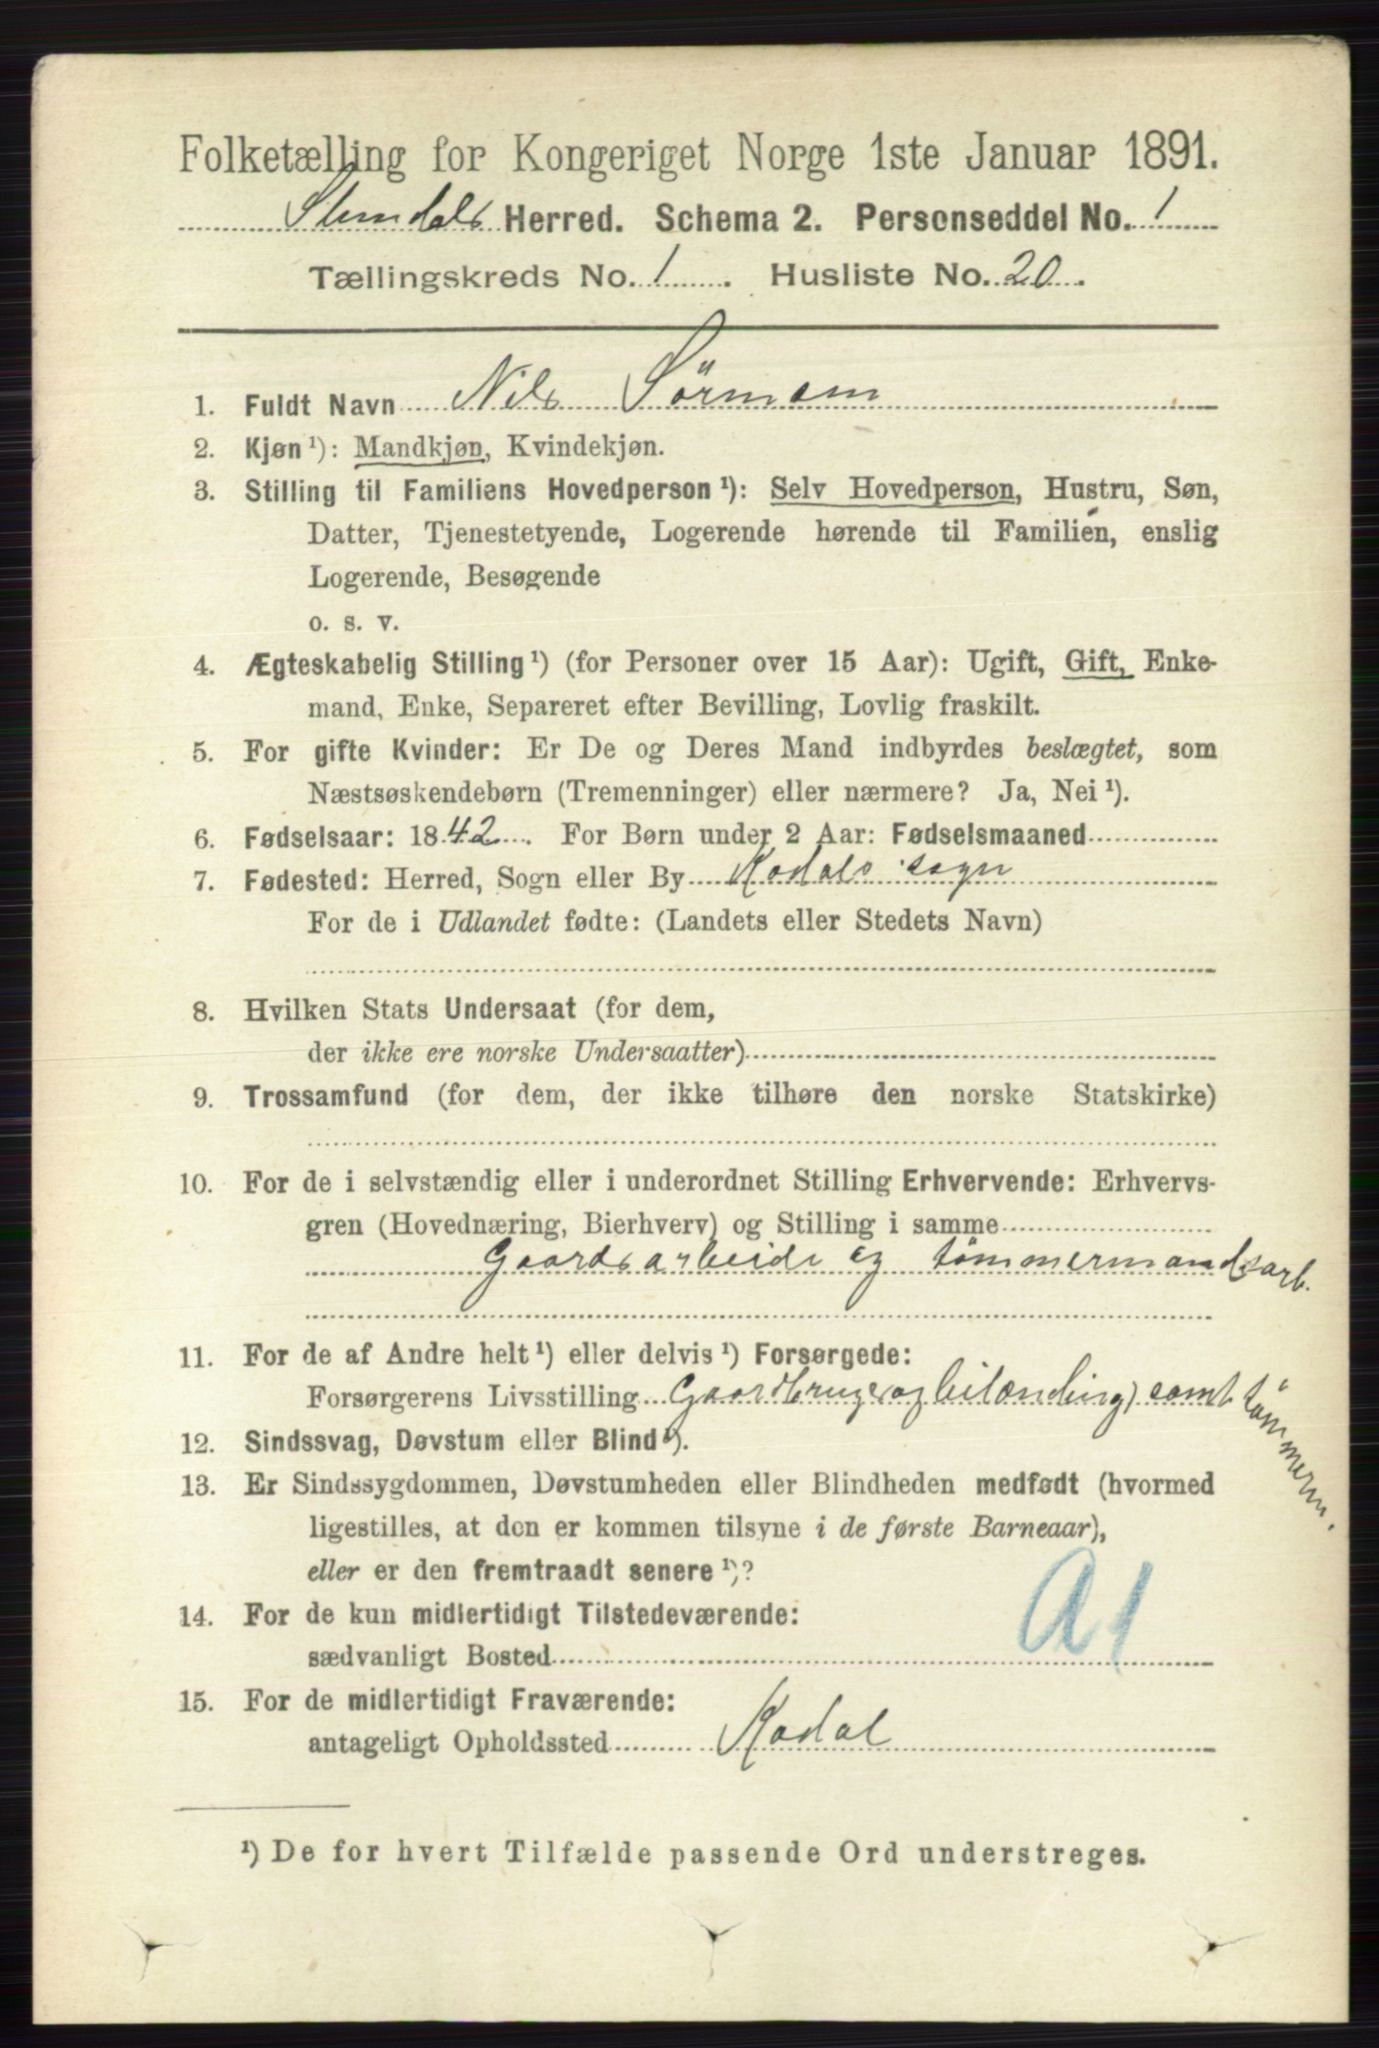 Folketælling for Kongeriget Norge 1ste Januar 1891.
Slemdals Herred. Schema 2. Personseddel No. 1
Tællingskreds No. 1. Husliste No. 20.
1. Fuldt Navn Nils Sörmann
2. Kjøn ¹): Mandkjøn, Kvindekjøn.
3. Stilling til Familiens Hovedperson ¹): Selv Hovedperson, Hustru, Søn,
Datter, Tjenestetyende, Logerende hørende til Familien, enslig
Logerende, Besøgende
o. s. v.
4. Ægteskabelig Stilling ¹) (for Personer over 15 Aar): Ugift, Gift, Enke-
mand, Enke, Separeret efter Bevilling, Lovlig fraskilt.
5. For gifte Kvinder: Er De og Deres Mand indbyrdes beslægtet, som
Næstsøskendebørn (Tremenninger) eller nærmere? Ja, Nei ¹).
6. Fødselsaar: 1842. For Børn under 2 Aar: Fødselsmaaned
7. Fødested: Herred, Sogn eller By Kodals sogn
For de i Udlandet fødte: (Landets eller Stedets Navn)
8. Hvilken Stats Undersaat (for dem,
der ikke ere norske Undersaatter)
9. Trossamfund (for dem, der ikke tilhøre den norske Statskirke)
10. For de i selvstændig eller i underordnet Stilling Erhvervende: Erhvervs-
gren (Hovednæring, Bierhverv) og Stilling i samme
Gaardsarbeide og tömmermandsarb.
11. For de af Andre helt ¹) eller delvis ¹) Forsørgede:
Forsørgerens Livsstilling Gaardbruger samt tömmerm.
12. Sindssvag, Døvstum eller Blind ¹).
13. Er Sindssygdommen, Døvstumheden eller Blindheden medfødt (hvormed
ligestilles, at den er kommen tilsyne i de første Barneaar),
eller er den fremtraadt senere ¹)?
14. For de kun midlertidigt Tilstedeværende:
sædvanligt Bosted
A1
15. For de midlertidigt Fraværende:
antageligt Opholdssted Kodal
¹) De for hvert Tilfælde passende Ord understreges.